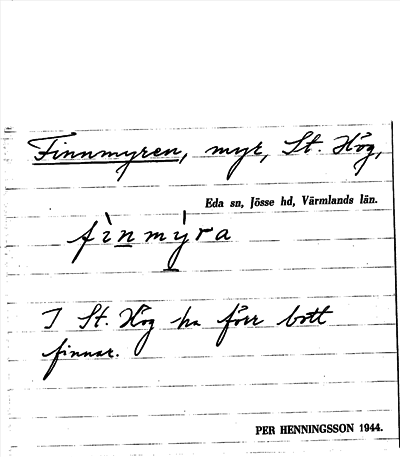 Finnmyren, myr, St. Hög,
Eda sn, Jösse hd, Värmlands län.
fìn mýra
I St. Hög ha förr bott
finnar.
PER HENNINGSSON 1944.